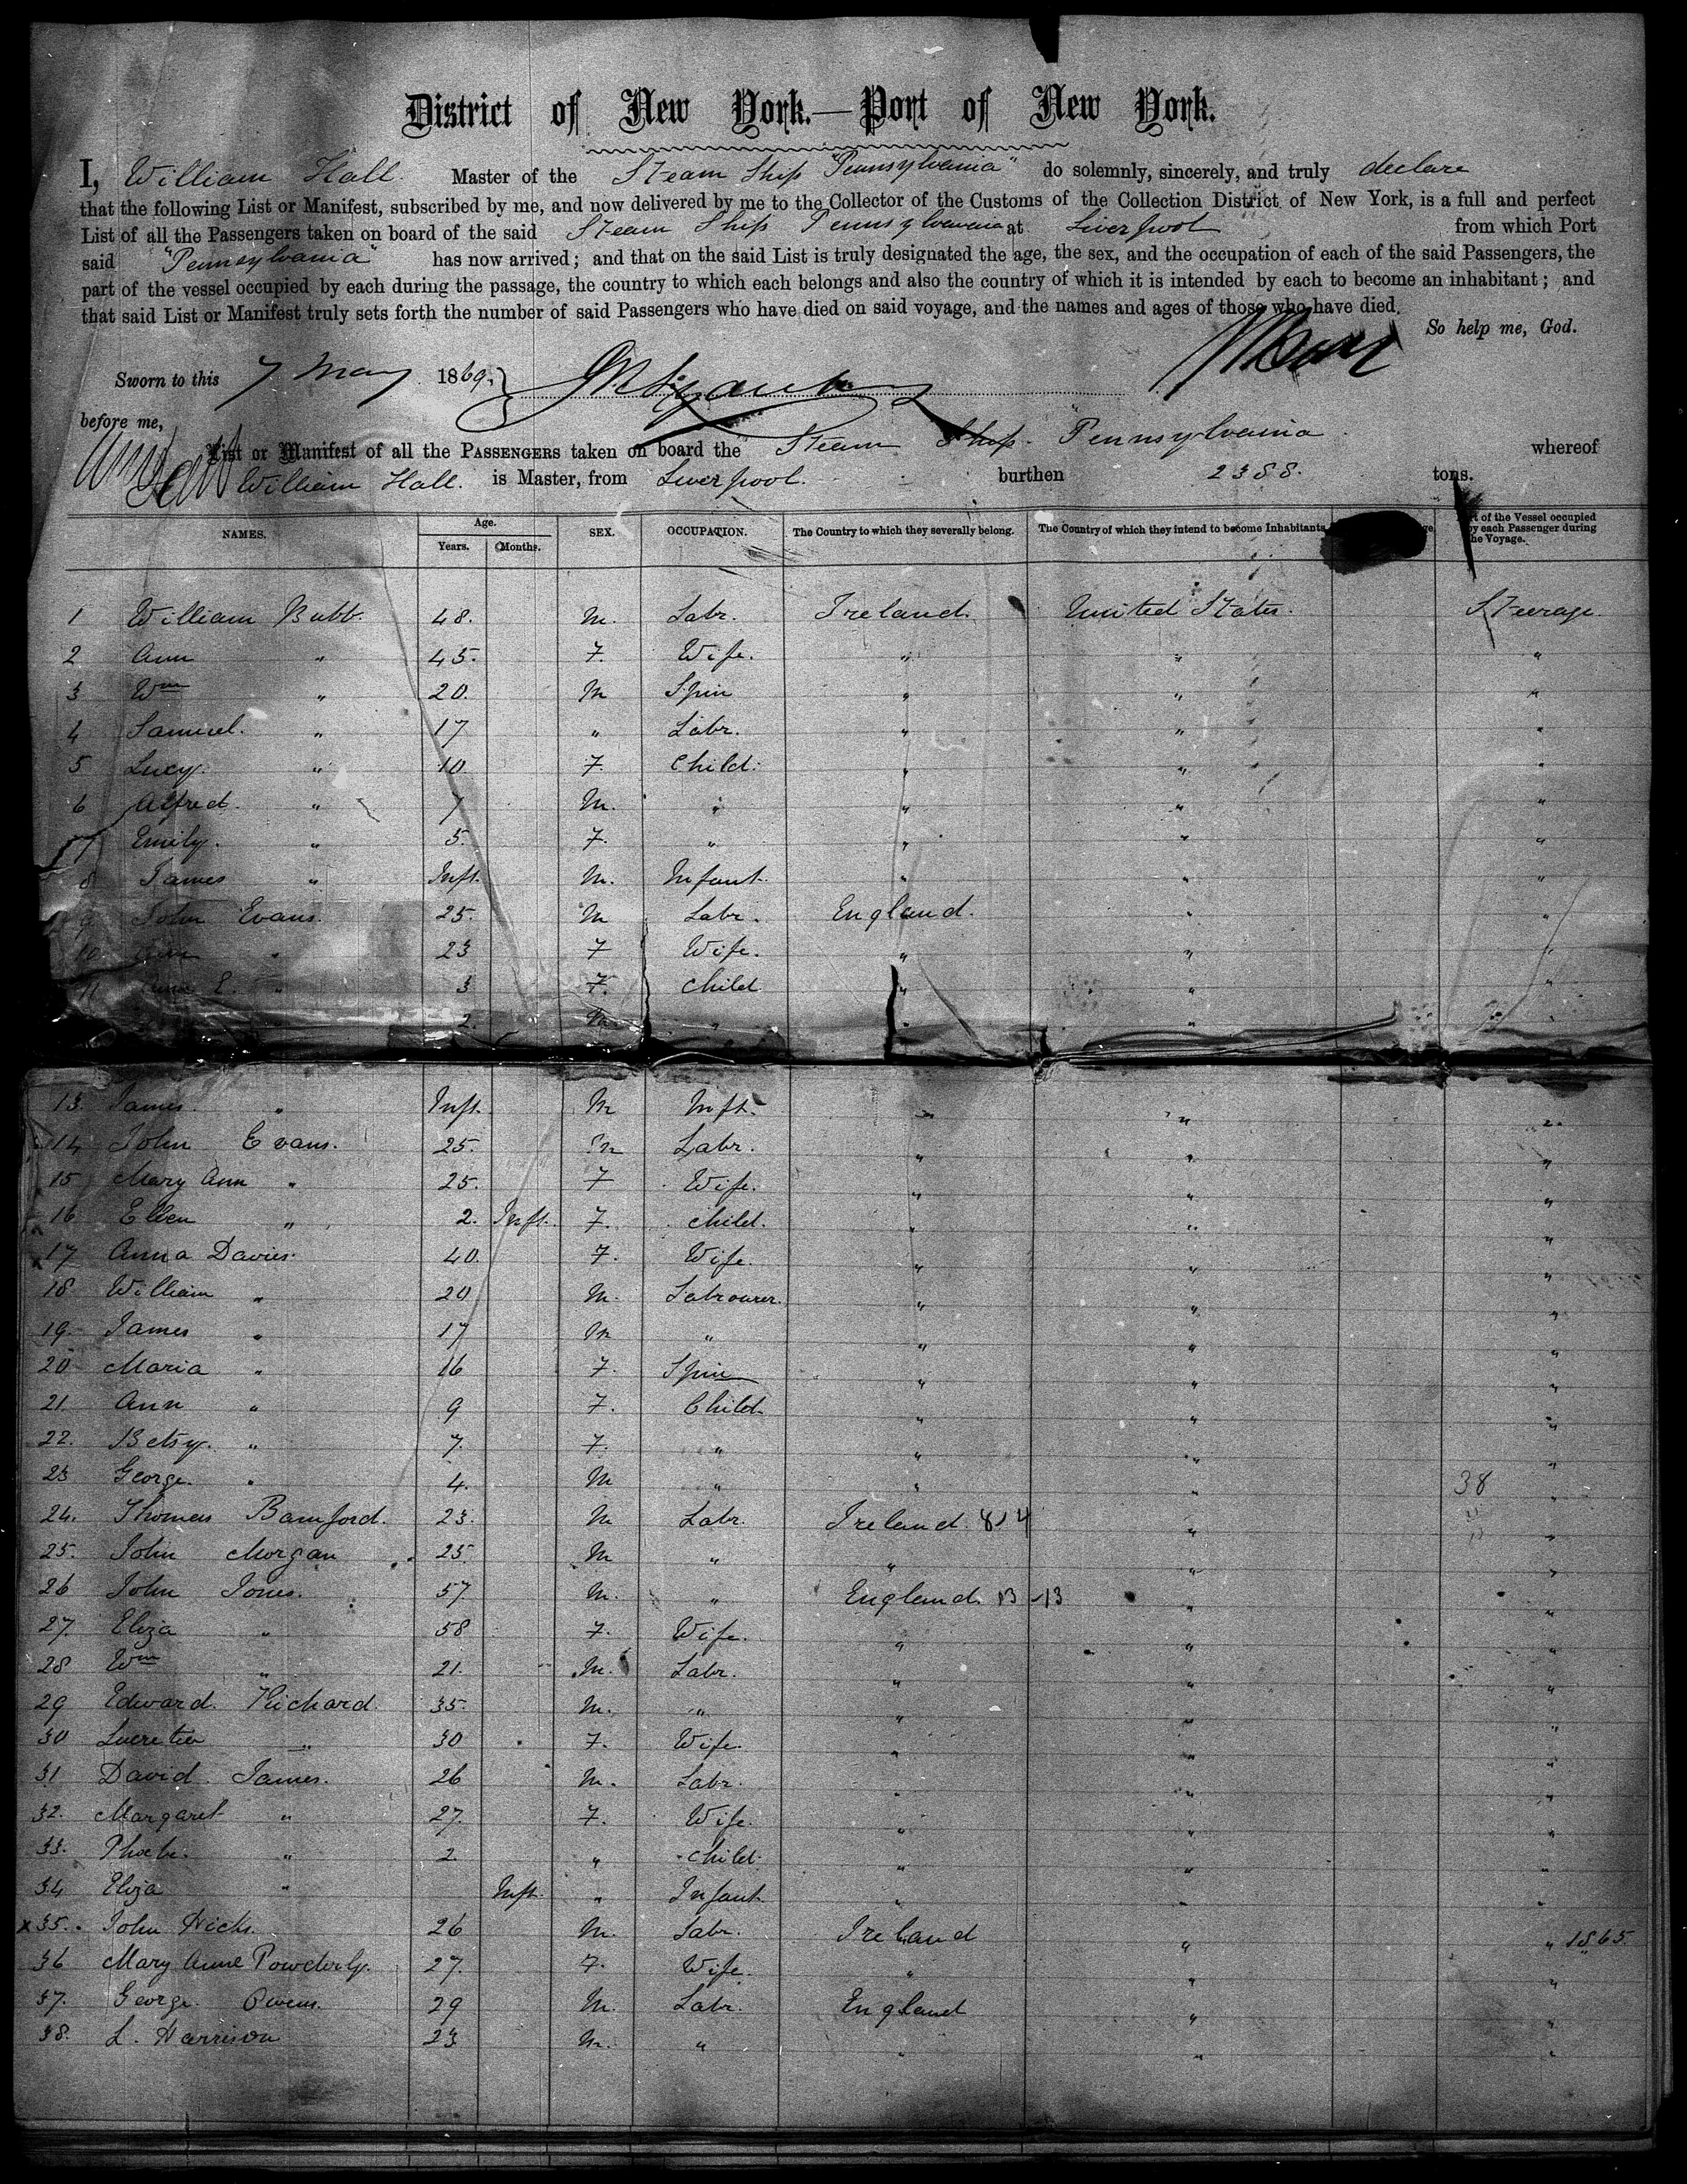 District of New York.—Port of New York.
I, William Hall. Master of the Steam Ship "Pennsylvania" do solemnly, sincerely, and truly declare
that the following List or Manifest, subscribed by me, and now delivered by me to the Collector of the Customs of the Collection District of New York, is a full and perfect
List of all the Passengers taken on board of the said Steam Ship Pennsylvania at Liverpool from which Port
said "Pennsylvania" has now arrived; and that on the said List is truly designated the age, the sex, and the occupation of each of the said Passengers, the
part of the vessel occupied by each during the passage, the country to which each belongs and also the country of which it is intended by each to become an inhabitant; and
that said List or Manifest truly sets forth the number of said Passengers who have died on said voyage, and the names and ages of those who have died.
So help me, God.
Sworn to this 7 May 1869,
before me,
List or Manifest of all the Passengers taken on board the Steam Ship "Pennsylvania whereof
William Hall. is Master, from Liverpool. burthen 2388. tons.
NAMES. Age. Years. Months. SEX. OCCUPATION. The Country to which they severally belong. The Country of which they intend to become Inhabitants. of the Vessel occupied by each Passenger during the Voyage.
1 William Bubb. 48. M. Labr. Ireland. United States. Steerage
2 Ann " 45. F. Wife. " " "
3 Wm " 20. M Spin " " "
4 Samuel. " 17 " Labr. " " "
5 Lucy. " 10 F. Child. " " "
6 Alfred. " 7 M. " " " "
7 Emily. " 5. F. " " " "
8 James " Inft. M. Infant. " " "
9 John Evans. 25. M Labr. England. " "
10. Ann " 23 F Wife. " " "
11 Ann E. " 3 F. Child " " "
2. M. " " " "
13. James. " Inft. M Inft. " " "
14 John Evans. 25. M Labr. " " "
15 Mary Ann " 25. F Wife. " " "
16 Ellen " 2. Inft. F. Child. " " "
17 Anna Davies. 40. F. Wife. " " "
18 William " 20 M. Labrourer. " " "
19. James " 17 M " " " "
20 Maria " 16 F. Spin " " "
21 Ann " 9 F. Child. " " "
22. Betsy. " 7. F. " " " "
23 George. " 4. M " " " 38 "
24. Thomas Bamford. 23. M Labr. Ireland. " "
25. John Morgan 25. M " " " "
26 John Jones. 57. M. " England. 13 " "
27. Eliza " 58 F. Wife. " " "
28 Wm " 21. M. Labr. " " "
29 Edward Richard. 35. M. " " " "
30 Lucretia " 30 F. Wife. " " "
31 David James. 26 M. Labr. " " "
32. Margaret " 27. F. Wife. " " "
33. Phoebe. " 2. " Child. " " "
34 Eliza " Inft. " Infant. " " "
x 35. John Hicks. 26 M. Labr. Ireland " " 1865.
36 Mary Anne Powderly. 27. F. Wife. " " "
37. George Owens. 29 M. Labr. England " "
38. L. Harrison 23 M. " " " "